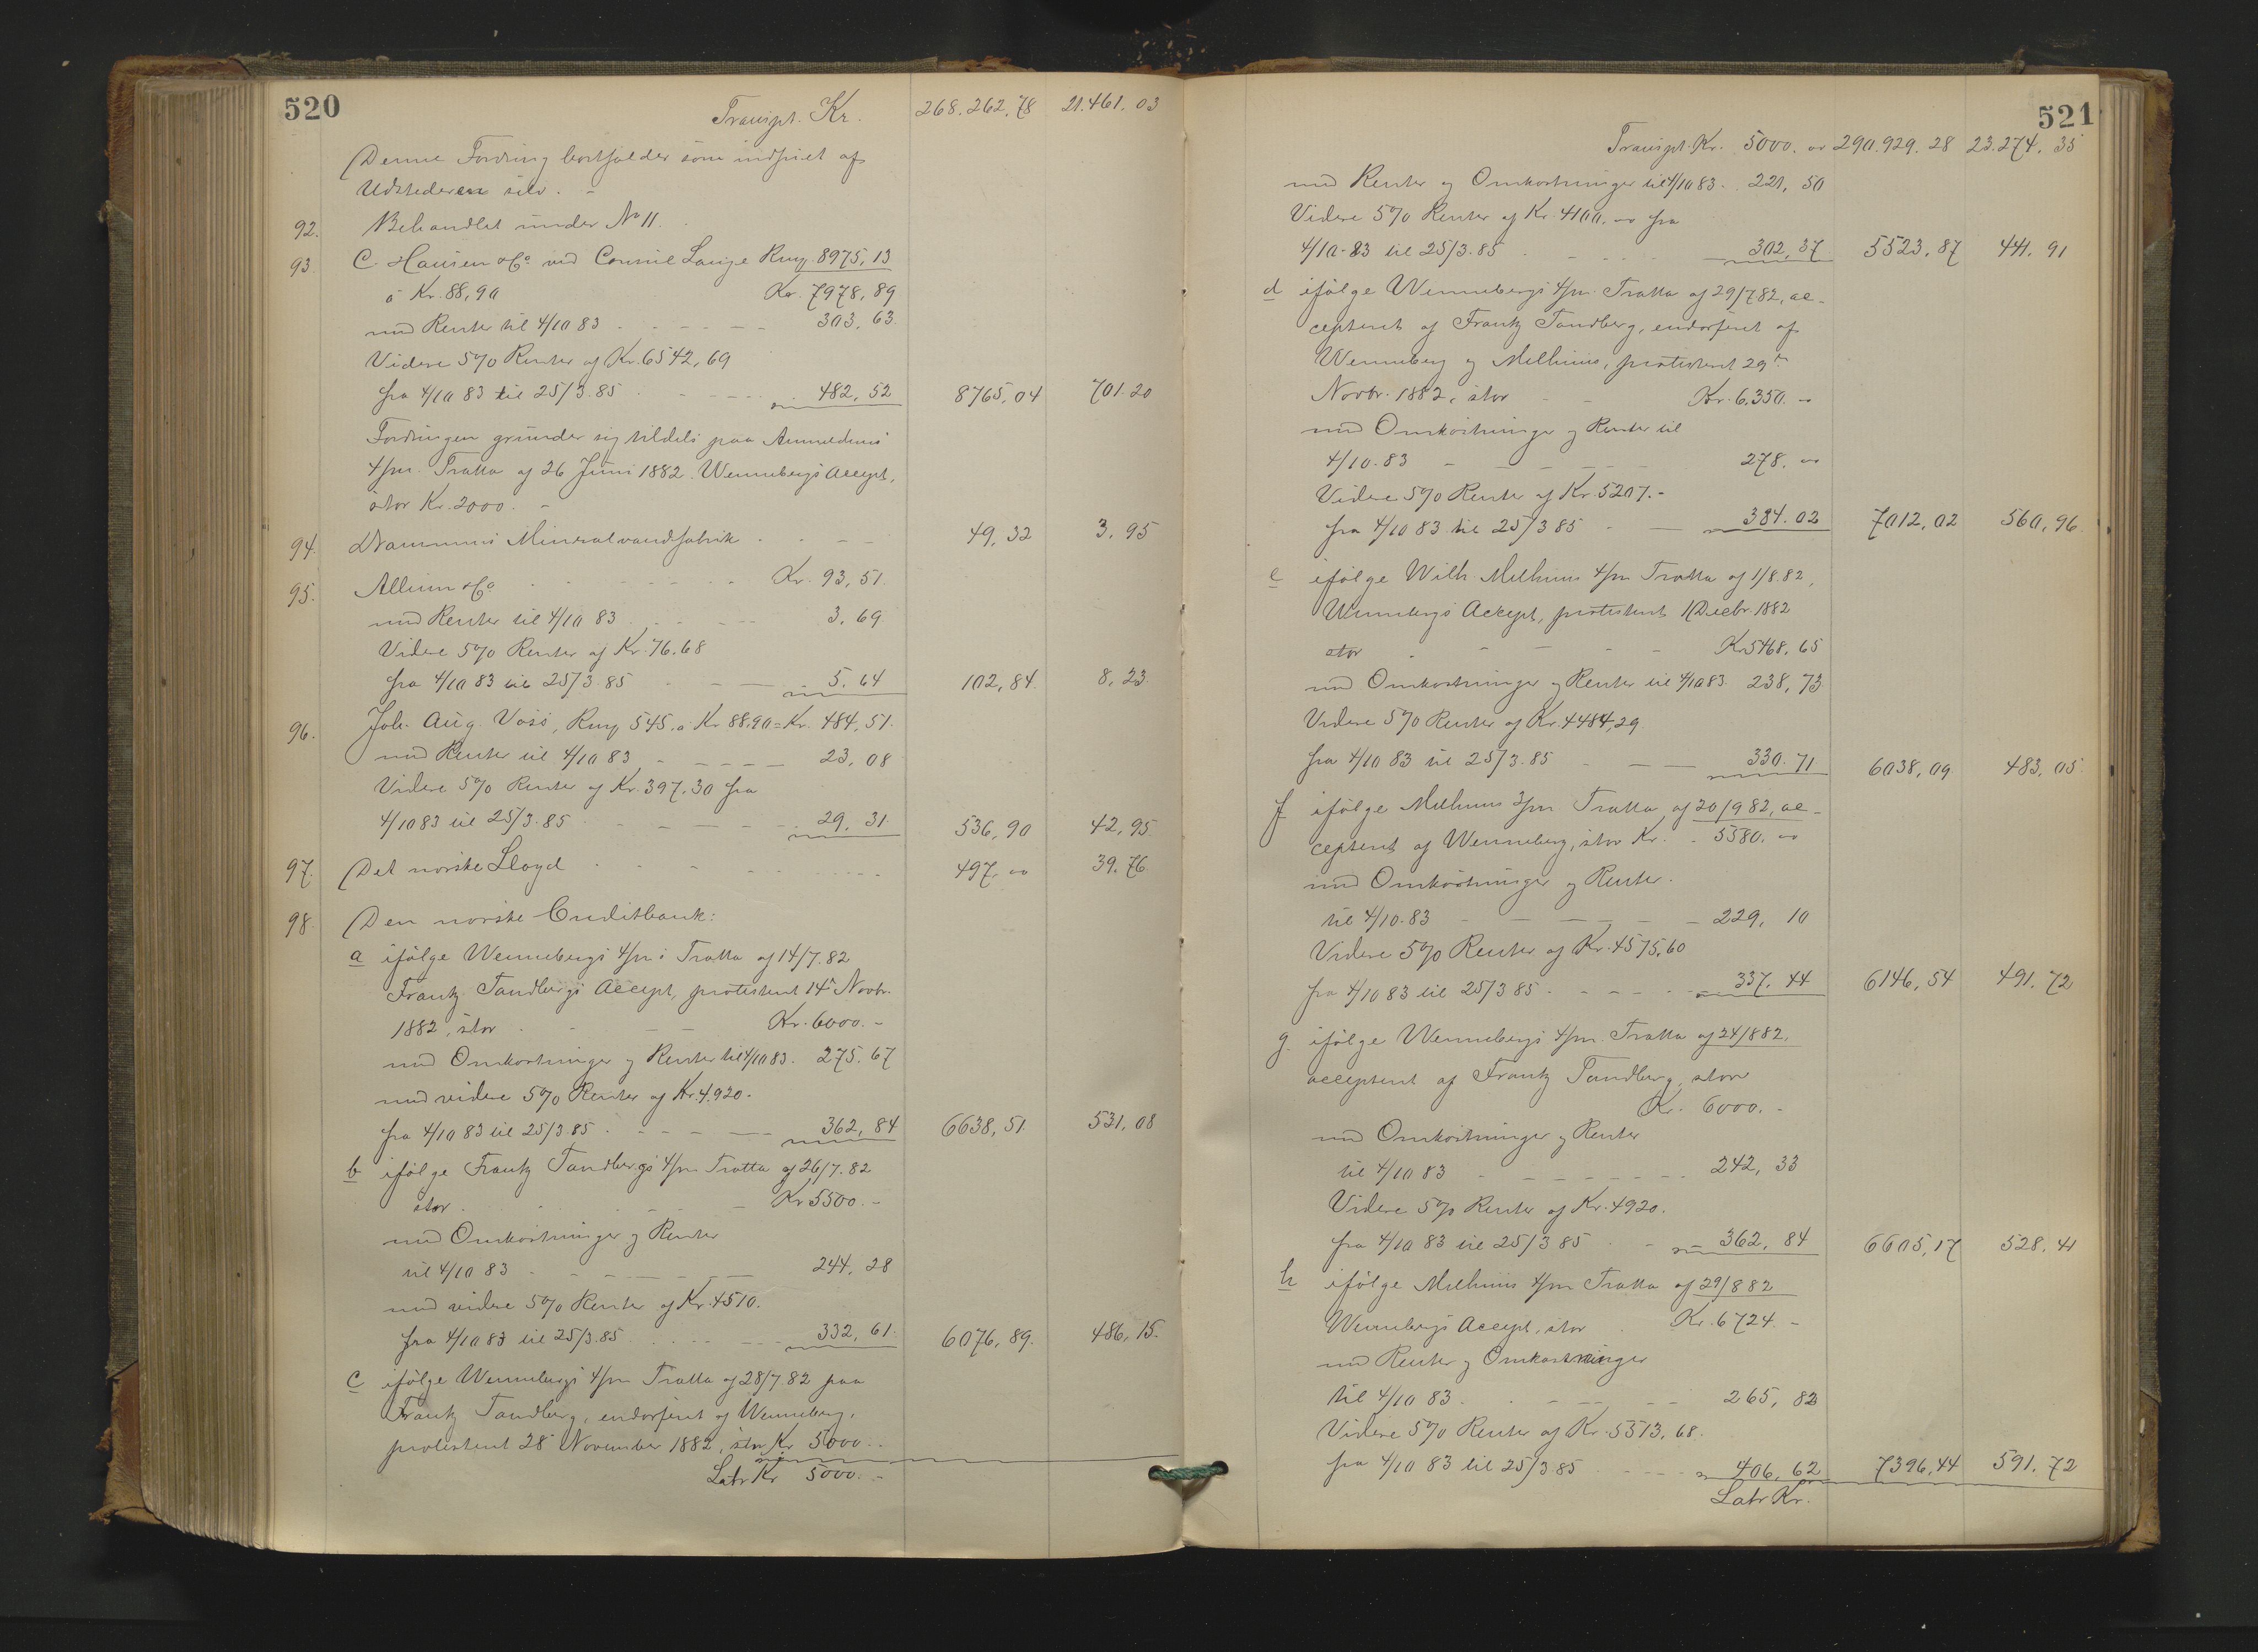 520
Transpt. Kr. 268.262,78 21.461.03
Denne Fordring bortfalder som indfriet af
Udstederen selv. -
92. Behandlet under No 11.
93 C. Hansen & Co. ved Lange Rmp. 8975,13
à Kr. 88,90 Kr. 7978,89
med Renter til 4/10 83 - - - 303,63
Videre 5% Renter af Kr. 6542,69
fra 4/10 83 til 25/3.85 - - - 482,52 8765,04 701.20
Fordringen grunder sig tildels paa Anmeldernes
4/m. Tratta af 26 Juni 1882. Wennebergs Accept,
stor Kr. 2000. -
94. Mineralvandfabrik - - - 49,32 3.95
95. Allum & Co. - - - Kr. 93,51
med Renter til 4/10 83 - - - 3,69
Videre 5% Renter af Kr. 76.68
fra 4/10 83 til 25/3.85 - - - 5.64 102,84 8,23
96. Joh. Aug. Voss, Rmp. 545. à Kr 88.90 = Kr. 484,51.
med Renter til 4/10 83 - - - 23,08
Videre 5% Renter af Kr. 397.30 fra
4/10 83 til 25/3.85 - - - 29.31 536,90 42,95
97. Det norske Lloyd - - - 497. " 39.76
98. Den norske Creditbank:
a ifølge Wennebergs 4/m: Tratta af 14/7.82
Frantz Tandbergs Accept, protesteret 14de Novbr.
1882, stor - - Kr. 6000. -
med Omkostninger og Renter til 4/10 83. 275.67
med videre 5% Renter af Kr. 4.920. -
fra 4/10 83 til 25/3 85 - - - 362,84 6638,51. 531,08
b ifølge Frantz Tandbergs 4/m Tratta af 26/7.82
stor - - - Kr 5500. -
med Omkostninger og Renter
til 4/10 83 - - - 244,28
med videre 5% Renter af Kr. 4510.
fra 4/10 83 til 25/3.85 - - - 332,61. 6076,89. 486,15.
c ifølge Wennebergs 4/m Tratta af 28/7 82 paa
Frantz Tandberg, endorseret af Wenneberg,
protesteret 28 November 1882, stor Kr 5000 -
Latr Kr 5000. -
521
Transpt. Kr. 5000. " 290.929.28 23.274.35
med Renter og Omkostninger til 4/10 83. 221,50
Videre 5% Renter af Kr. 4100. " fra
4/10-83 til 25/3.85 - - - 302,37 5523,87 441.91
d ifølge Wennebergs 4/m Tratta af 29/7 82, ac-
cepteret af Frantz Tandberg, endorseret af
Wenneberg og Melhuus, protesteret 29de
Novbr. 1882, stor - - Kr. 6.350. "
med Omkostninger og Renter til
4/10.83 - - - 278. "
Videre 5% Renter af Kr. 5207. -
fra 4/10 83 til 25/3 85 - - 384.02 7012,02 560,96
e ifølge Wilh. Melhuus 4/m Tratta af 1/8.82,
Wennebergs Accept, protesteret 1 Decbr. 1882
stor - - - Kr 5468,65
med Omkostninger og Renter til 4/10 83. 238,73
Videre 5% Renter af Kr. 4484,29
fra 4/10 83 til 25/3.85 - - - 330.71 6038,09 483,05
f ifølge Melhuus 3/m. Tratta af 20/9 82, ac-
cepteret af Wenneberg, stor Kr. - 5580. "
med Omkostninger og Renter.
til 4/10.83 - - - 229,10
Videre 5% Renter af Kr. 4575,60
fra 4/10 83 til 25/3 85 - - - 337.44 6146,54 491.72
g. ifølge Wennebergs 4/m. Tratta af 24/8 82.
accepteret af Frantz Tandberg, stor
Kr. 6000. -
med Omkostninger og Renter
til 4/10 83 - - - 242,33
Videre 5% Renter af Kr. 4920.
fra 4/10 83 til 25/3 85 - - 362,84 6605,17 528,41
h ifølge Melhuus 4/m Tratta af 29/8 82
Wennebergs Accept, stor Kr. 6724. -
med Renter og Omkostninger
til 4/10 83 - - - 265,82
Videre 5% Renter af Kr. 5513,68.
fra 4/10 83 til 25/3 85 - - - 406,62 7396,44 591.72
Latr Kr.